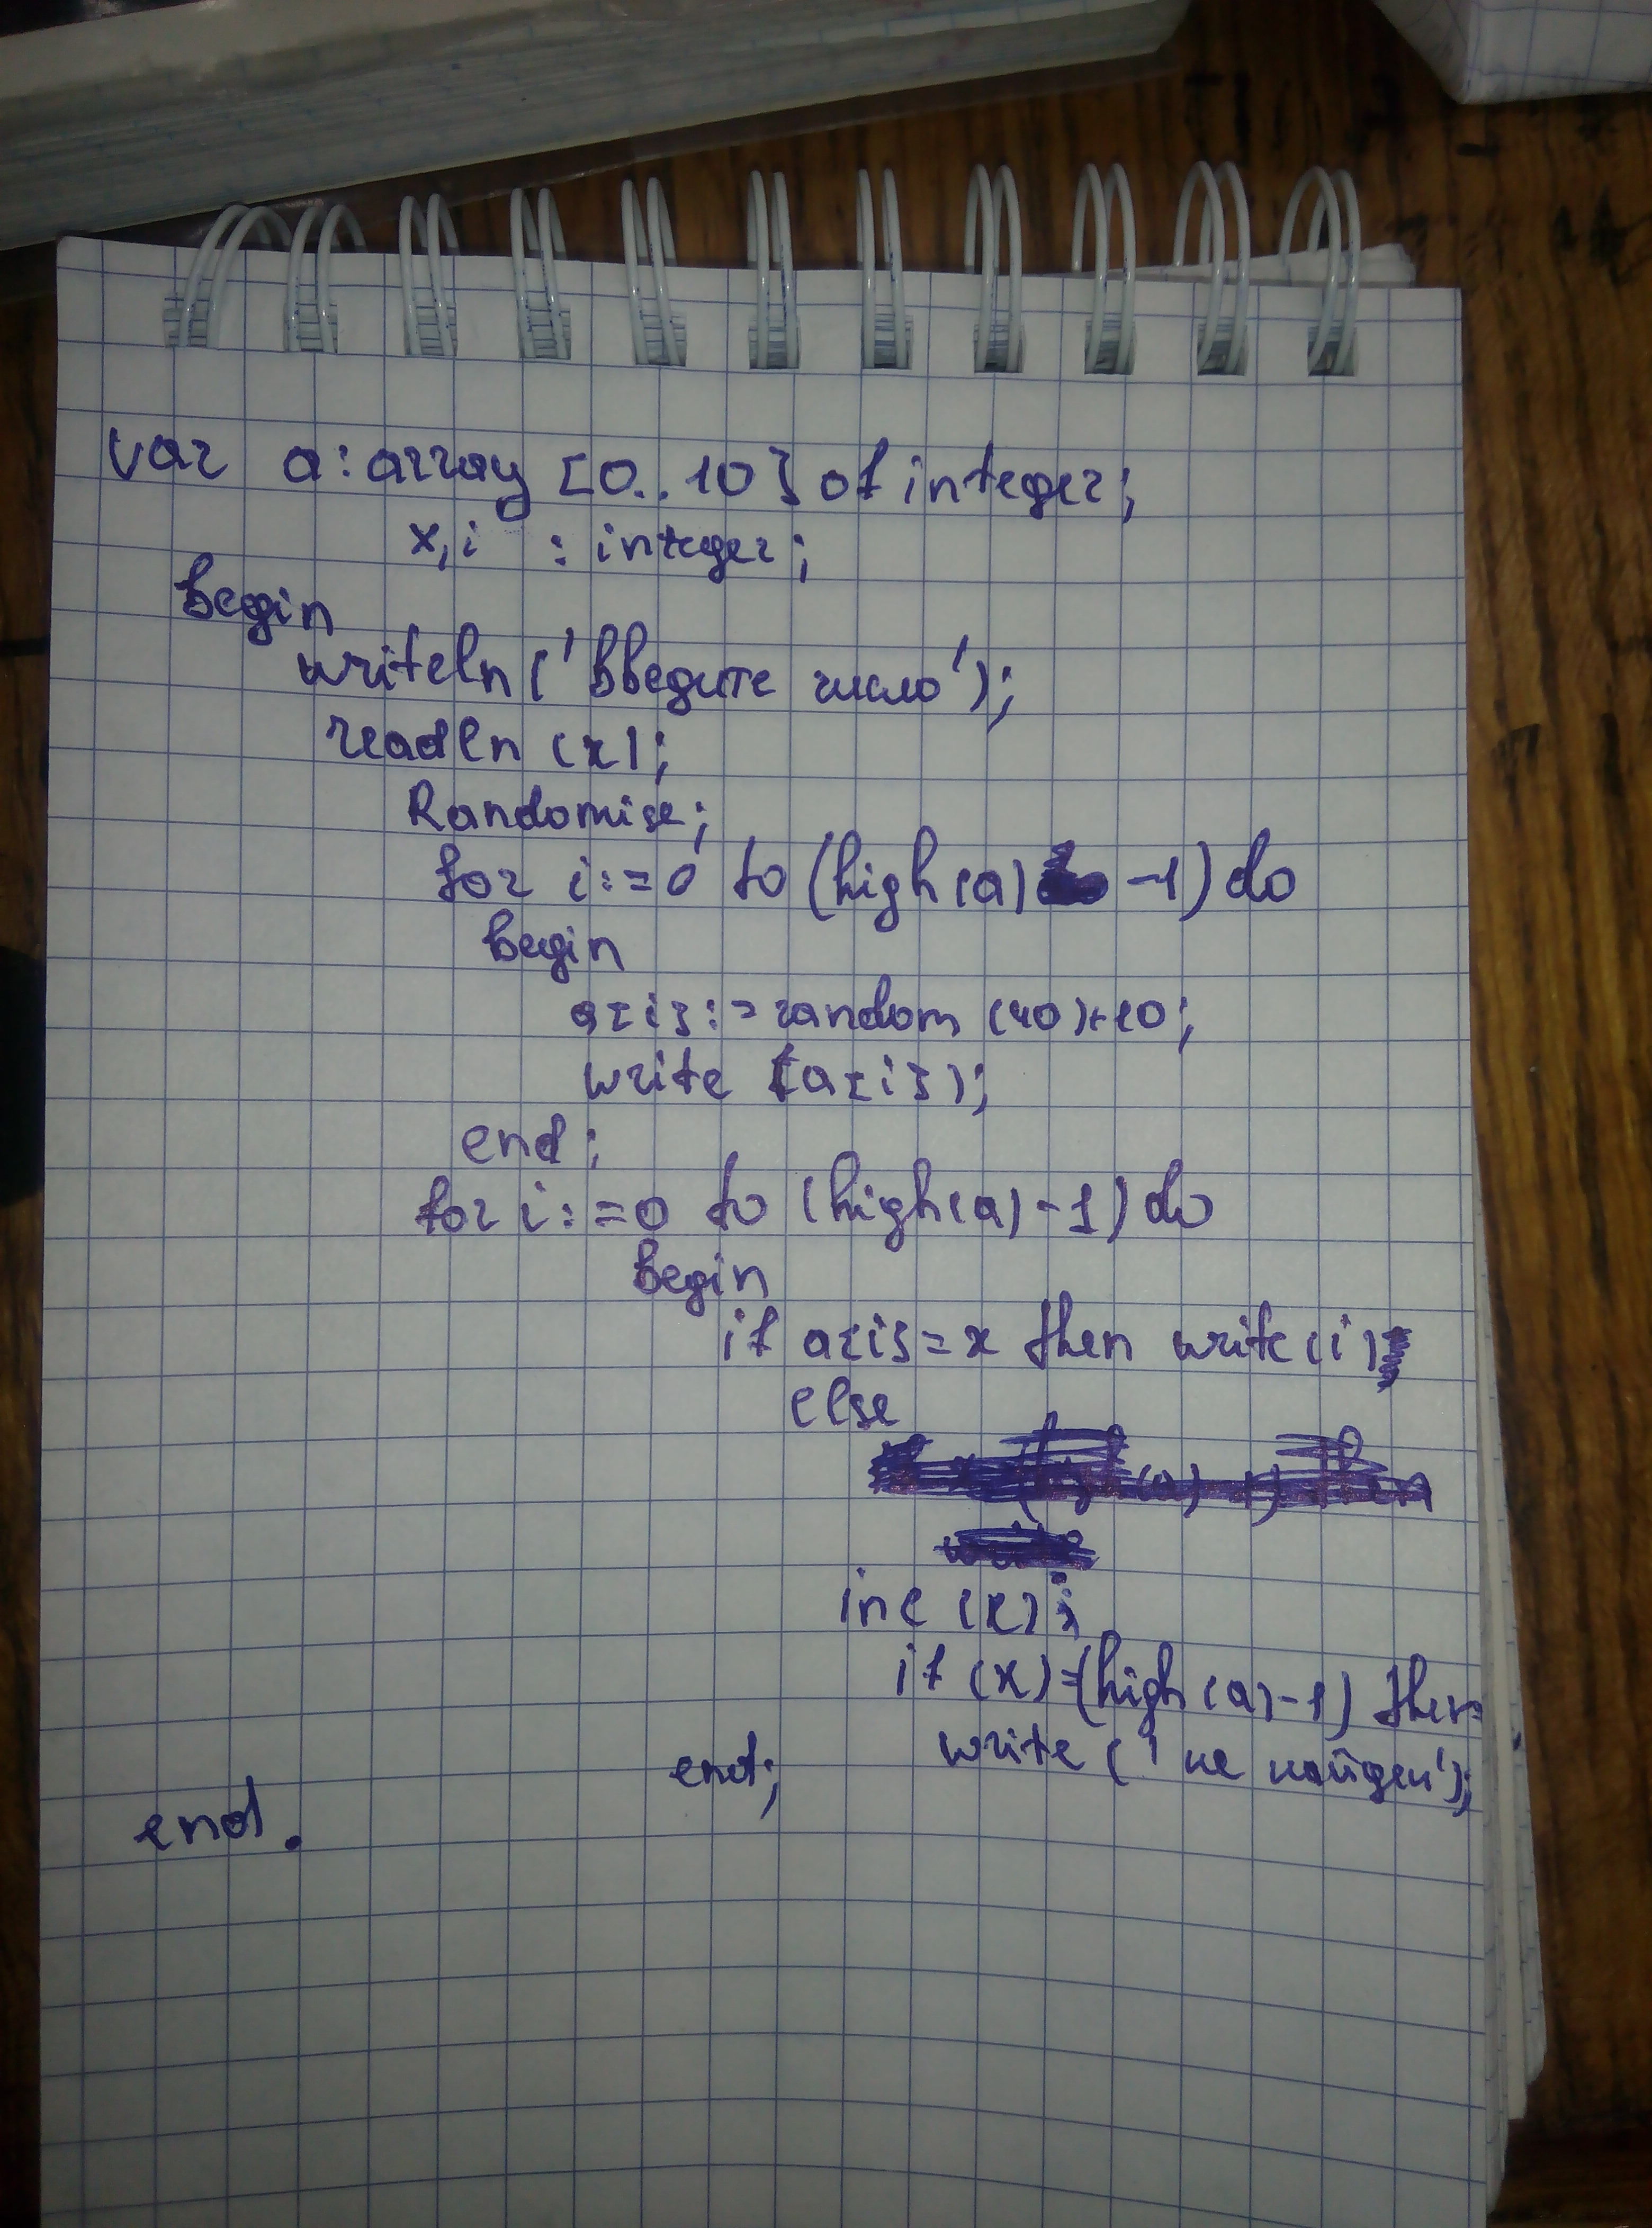 var a: array [0..10] of integer;
x,i : integer;
begin
writeln ('Введите число');
readln (x);
Randomise;
for i:=0 to (high(a) -1) do
begin
a[i]:=random (40)+10;
write (a[i]);
end;
for i:=0 to (high(a)-1) do
begin
if a[i]=x then write(i)
else
inc (x);
if (x)=(high(a)-1) then
write ('не найден');
end;
end.